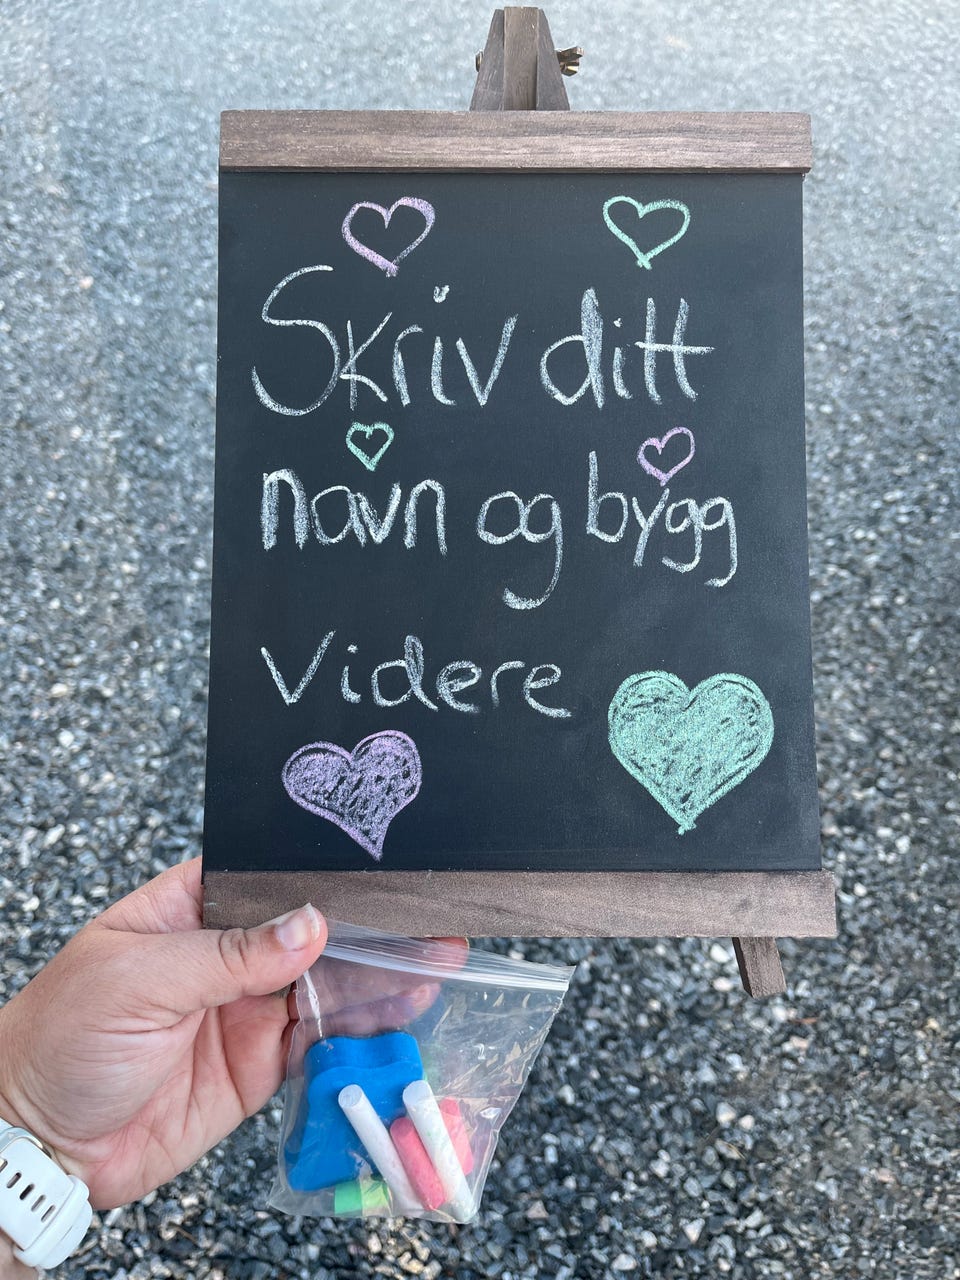 Skriv ditt
navn og bygg
videre